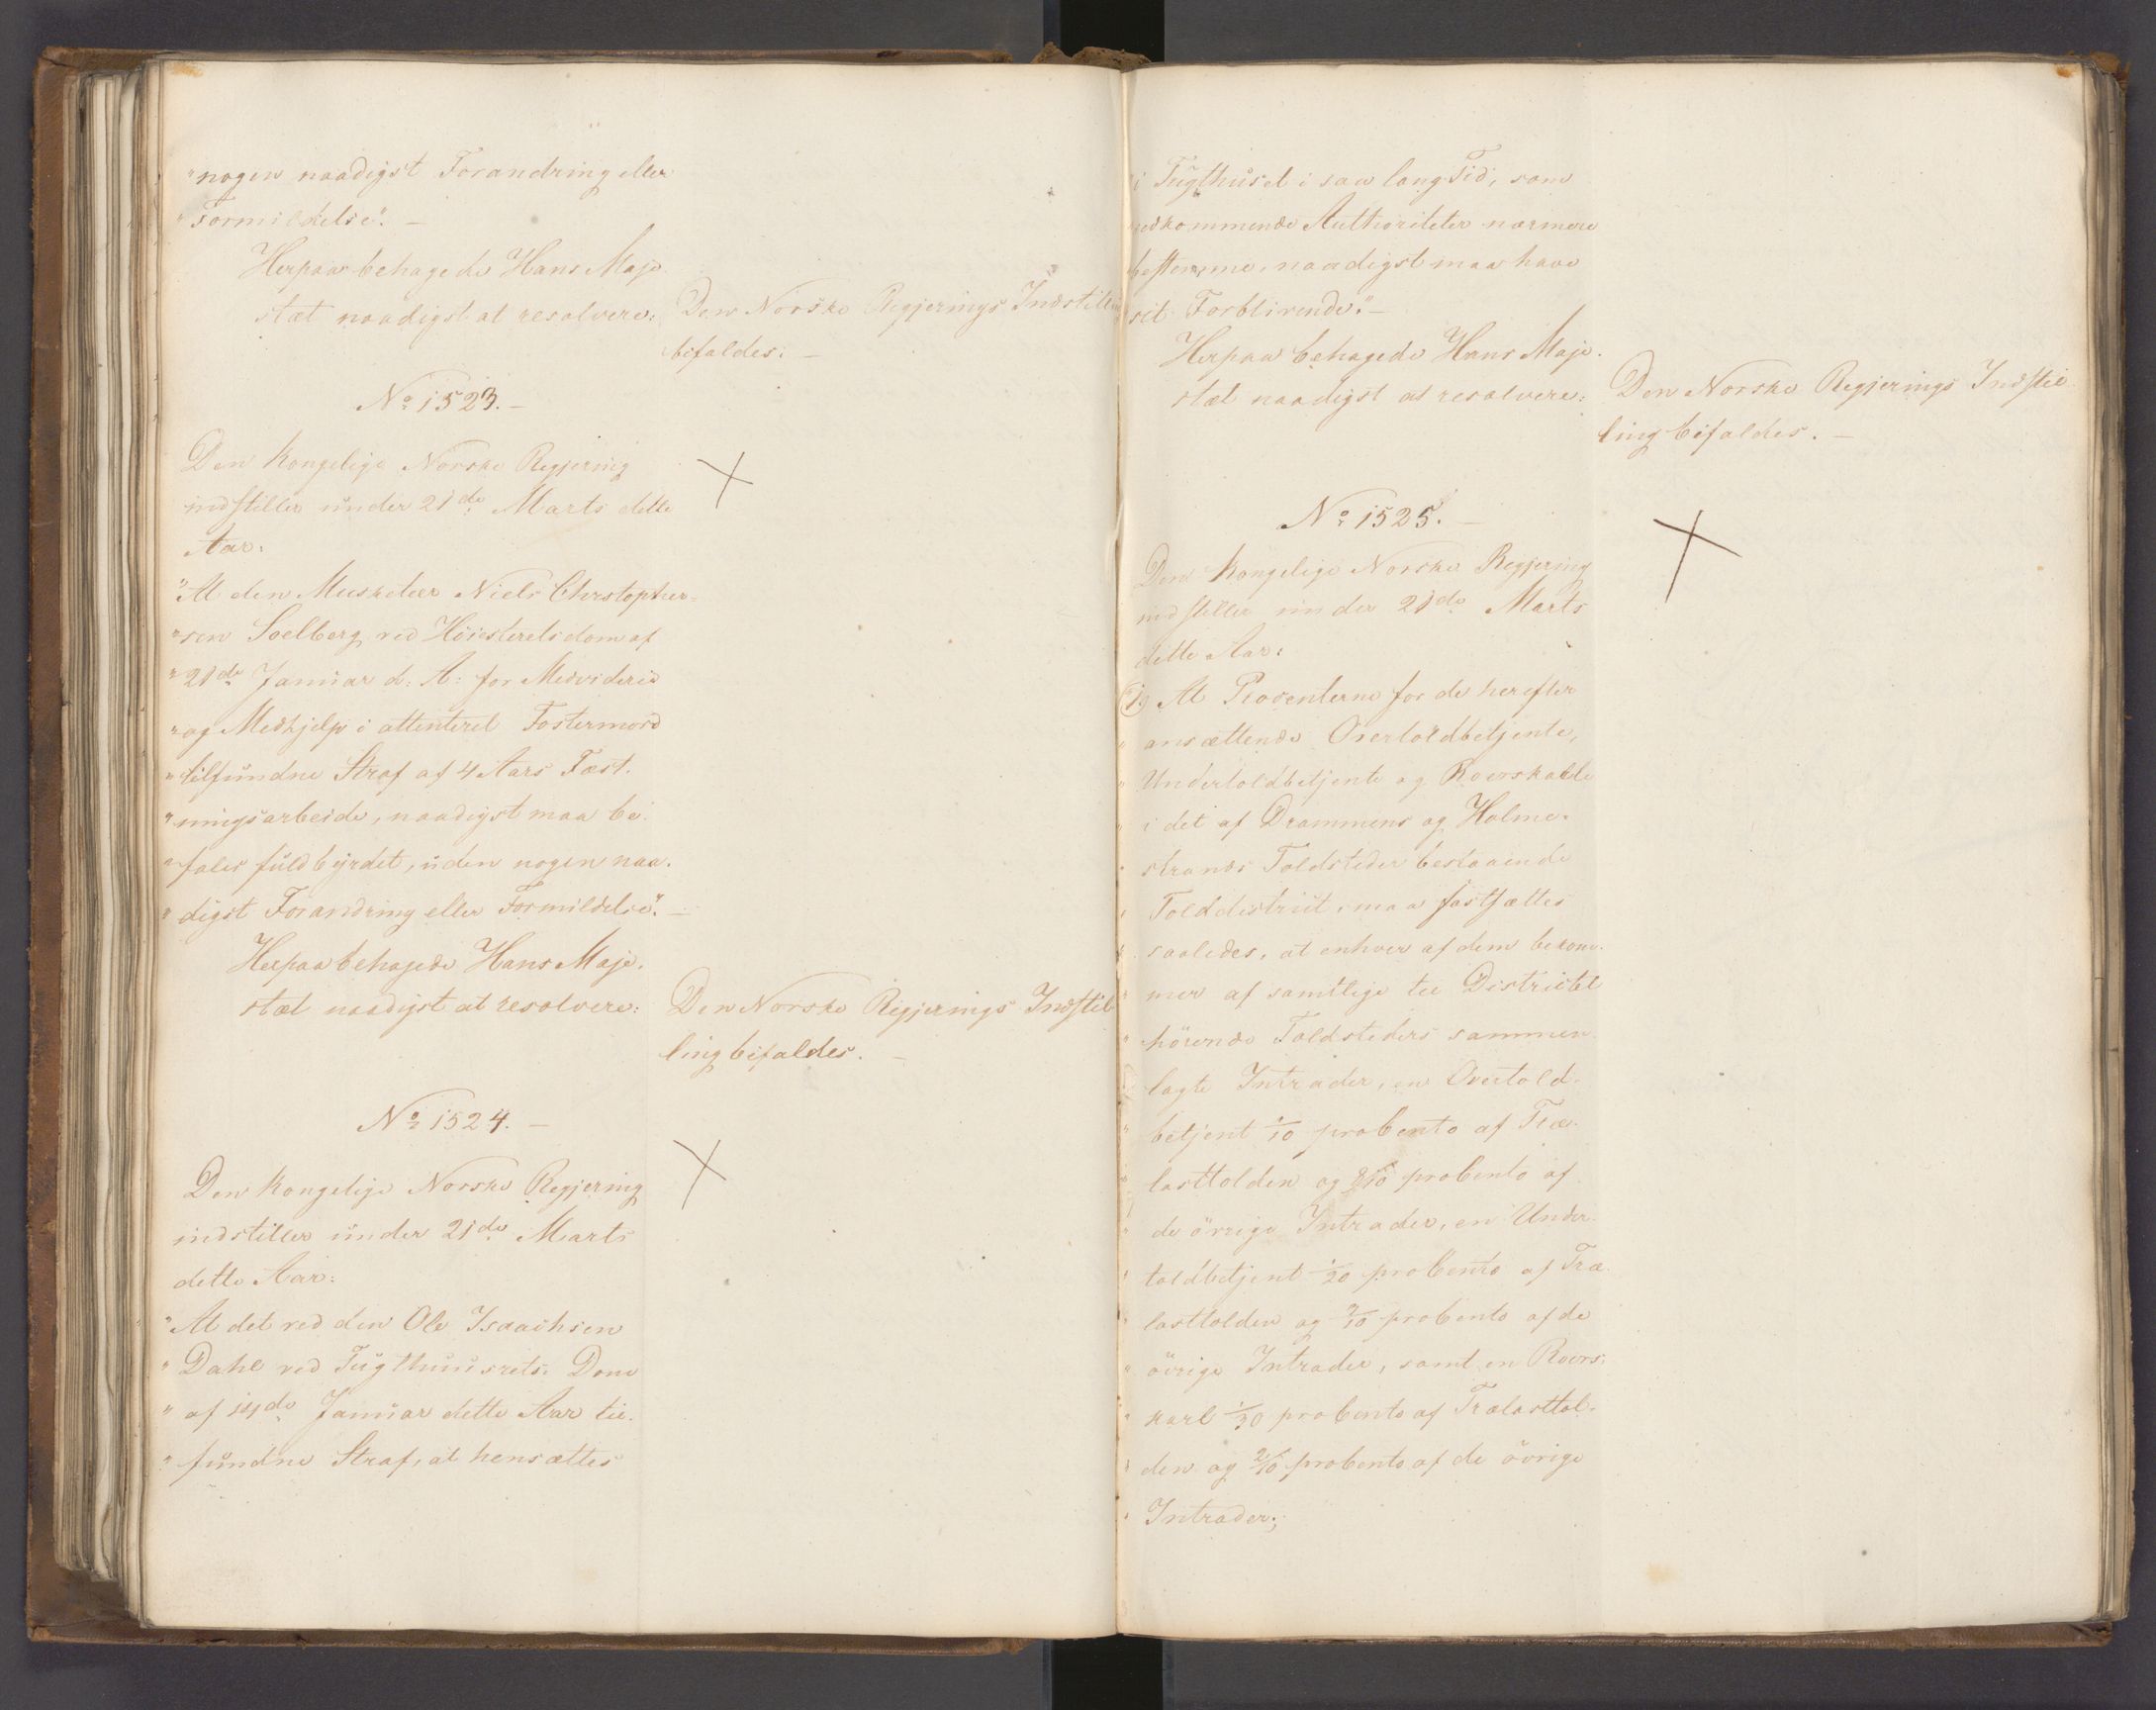 "nogen naadigst Forandring eller
"Formildelse". —
Herpaa behagede Hans Maje-
stæt naadigst at resolvere:
Den Norske Regjerings Indstilling
bifaldes. —
No 1523. —
Den Kongelige Norske Regjering
indstiller under 21de Marts dette
Aar:
"At den Musketeer Niels Christopher-
"sen Soelberg ved Höiesteretsdom af
"21de Januar d: A: for Medviderie
"og Medhjelp i attenteret Fostermord
"tilfundne Straf af 4 Aars Fæst-
"ningsarbeide, naadigst maa be-
"fales fuldbyrdet, uden nogen naa-
"digst Forandring eller Formildelse". —
Herpaa behagede Hans Maje-
stæt naadigst at resolvere:
Den Norske Regjerings Indstil-
ling bifaldes. —
No 1524. —
Den Kongelige Norske Regjering
indstiller under 21de Marts
dette Aar:
"At det ved den Ole Isaachsen
"Dahl ved Tugthuusrets Dom
"af 14de Januar dette Aar til-
"fundne Straf, at hensættes
"i Tugthuset i saa lang Tid, som
vedkommende Authoriteter nærmere
bestemme, naadigst maa have
sit Forblivende". —
Herpaa behagede Hans Maje-
stæt naadigst at resolvere:
Den Norske Regjerings Indstil-
ling bifaldes. —
No 1525. —
Den Kongelige Norske Regjering
indstiller under 21de Marts
dette Aar:
1) At Procenterne for de herefter
" ansættende Overtoldbetjente,
" Undertoldbetjente og Roerskarle
" i det af Drammens og Holme-
" strands Toldsteder bestaaende
" Tolddistrict, maa fastsættes
" saaledes, at enhver af dem bekom-
" mer af samtlige til Districtet
" hörende Toldsteders sammen-
" lagte Intrader, en Overtold-
" betjent 1/10 proCento af Træ-
" lasttolden og 3/10 proCento af
" de övrige Intrader, en Under-
" toldbetjent 1/20 proCento af Træ-
" lasttolden og 2/10 proCento af de
" övrige Intrader, samt en Roers-
" karl 1/30 proCento af Trælasttol-
" den og 2/10 proCento af de övrige
" Intrader;